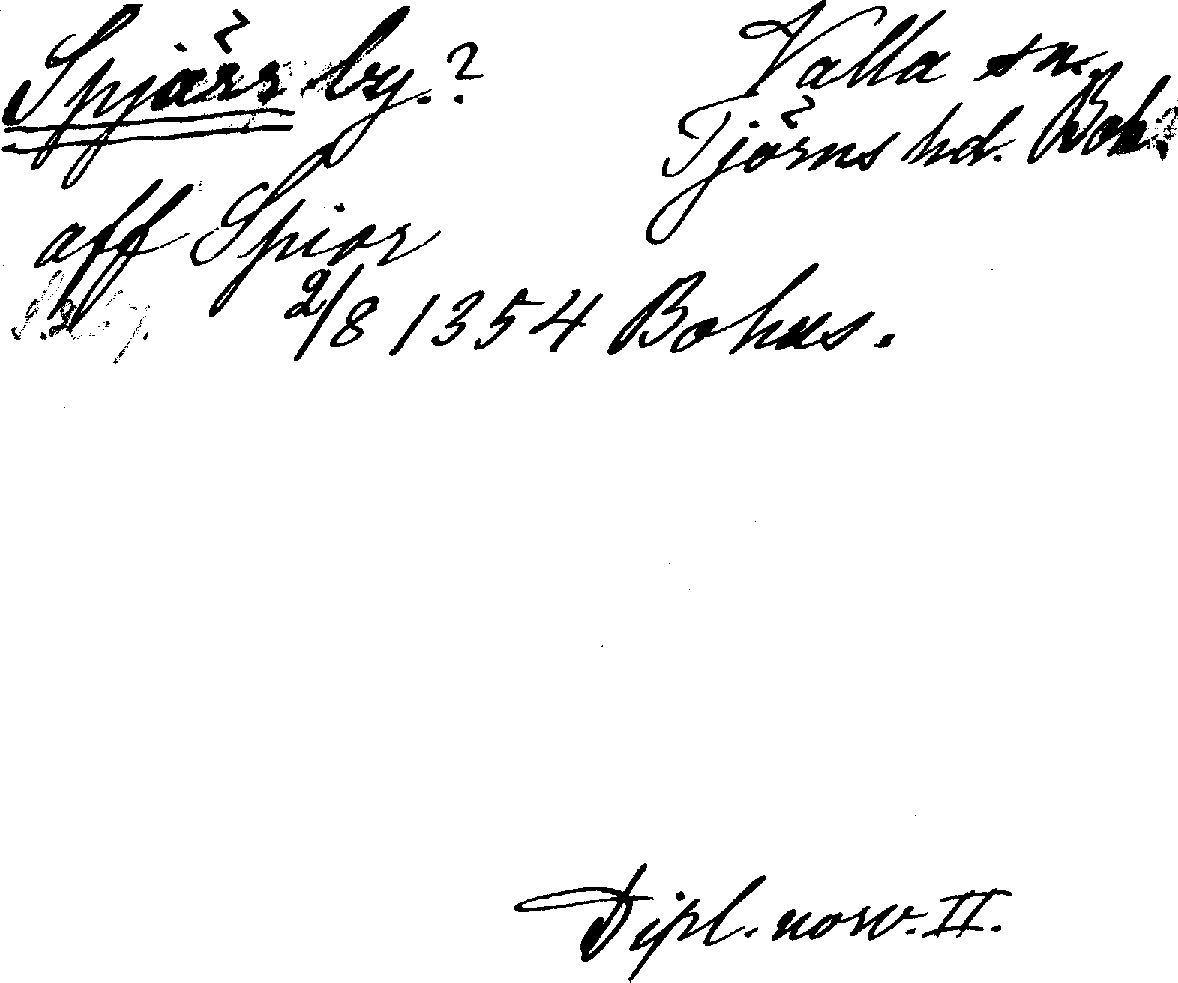 Spjärr by.?
Valla sn.
Tjörns hd. Boh.
aff Spior
S. 267.
2/8 1354 Bohus.
Dipl. norv. II.